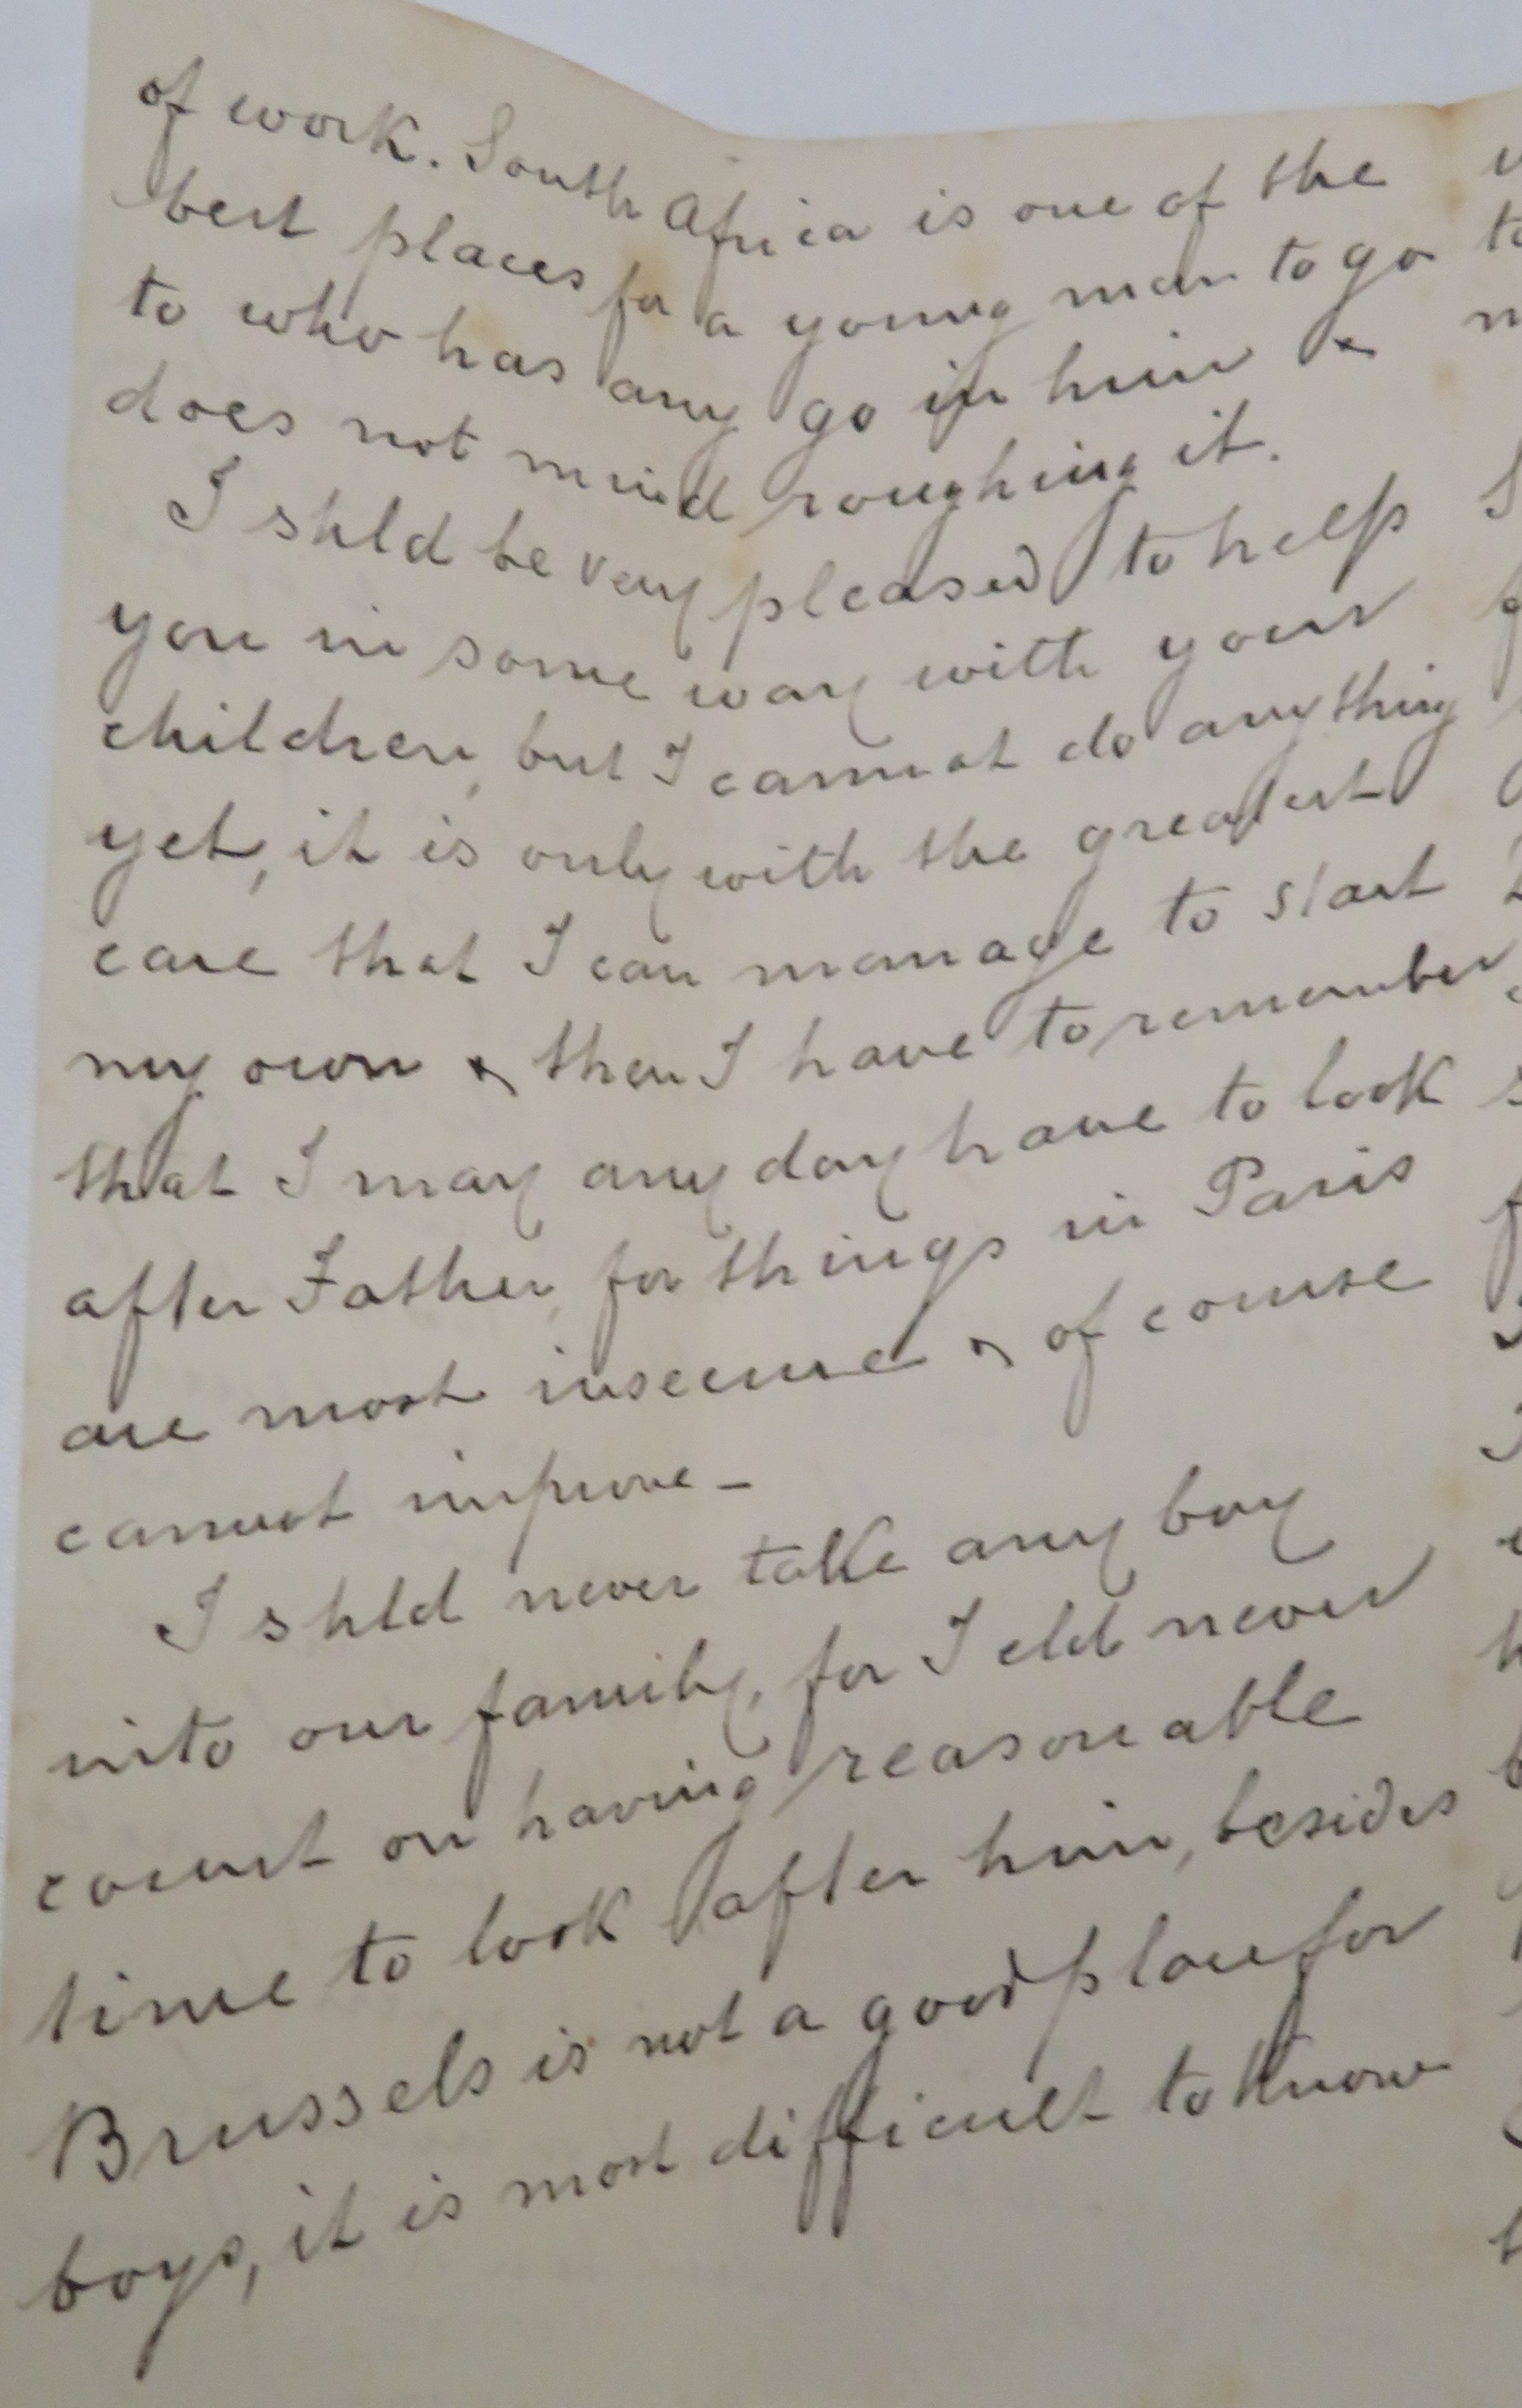 of work. South Africa is one of the
best places for a young man to go
to who has any go in him &
does not mind roughing it.
I shld be very pleased to help
you in some way with your
children, but I cannot do anything
yet, it is only with the greatest
care that I can manage to start
my own & then I have to remember
that I may any day have to look
after Father, for things in Paris
are most insecure & of course
cannot improve -
I shld never take any boy
into our family, for I cld never
count on having reasonable
time to look after him, besides
Brussels is not a good place for
boys, it is most difficult to know